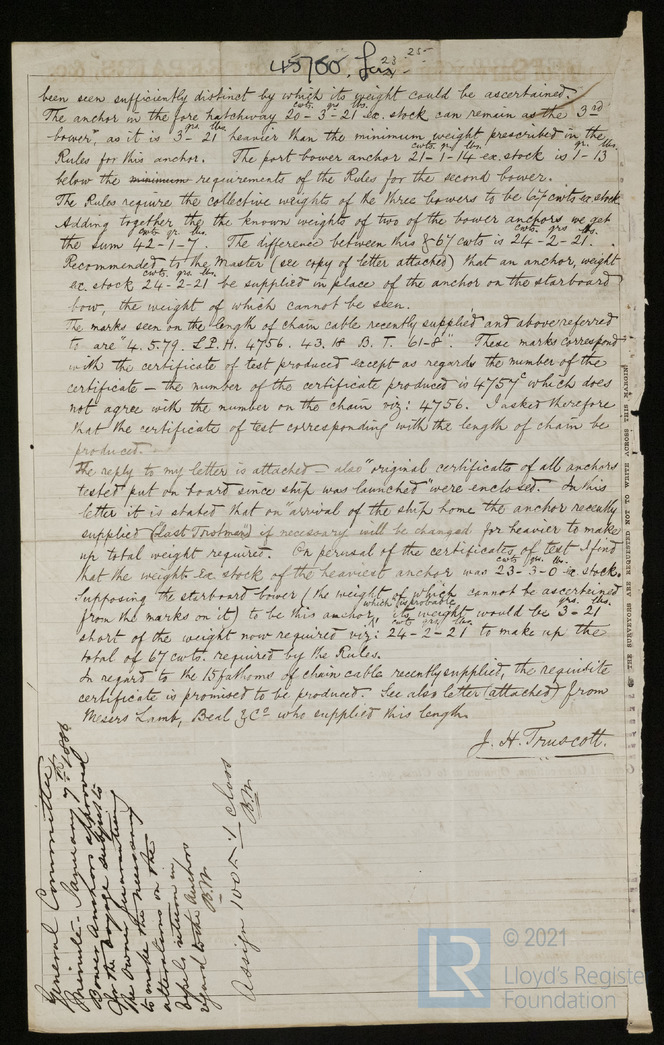 45700. Lon
23 25
been seen sufficiently distinct by which its weight could be ascertained.
The anchor in the fore hatchway 20-3-21 ex. stock can remain as the "3rd
bower", as it is 3-21 heavier than the minimum weight prescribed in the
Rules for this anchor. The port bower anchor 21-1-14 ex. stock is 1-13
below the minimum requirements of the Rules for the second bower.
The Rules require the collective weights of the three bowers to be 67 cwts ex. stock
Adding together the the known weights of two of the bower anchors we get
the sum 42-1-7. The difference between this & 67 cwts is 24-2-21.
Recommended to the Master (see copy of letter attached) that an anchor, weight
ex. stock 24-2-21 be supplied in place of the anchor on the starboard
bow, the weight of which cannot be seen.
The marks seen on the length of chain cable recently supplied and above referred
to are "4.5.79. L.P.H. 4756. 43. 18 B. T. 61-8". These marks correspond
with the certificate of test produced except as regards the number of the
certificate – the number of the certificate produced is 4757c which does
not agree with the number on the chain viz: 4756. I asked therefore
that the certificate of test corresponding with the length of chain be
produced.
The reply to my letter is attached – also "original certificates of all anchors
tested put on board since ship was launched" were enclosed. In this
letter it is stated that on "arrival of the ship home the anchor recently
supplied (Last Trotman) if necessary will be changed for heavier to make
up total weight required. On perusal of the certificates of test I find
that the weight ex. stock of the heaviest anchor was 23-3-0 ex. stock.
Supposing the starboard bower (the weight of which cannot be ascertained
from the marks on it) to be this anchor, which is probable, its weight would be 3-21
short of the weight now required viz: 24-2-21 to make up the
total of 67 cwts. required by the Rules.
In regard to the 15 fathoms of chain cable recently supplied, the requisite
certificate is promised to be produced. See also letter (attached) from
Messrs Lamb, Beal & Co who supplied this length.
J. H. Truscott.
General Committee
Minute - January 7th 1886
Bower Anchors approved
for the voyage subject to
the Owners
to make the necessary
alterations on the
Vessels return in
regard to the Anchors
B.W
Assign 100 A 1 class
B.W
THE SURVEYORS ARE REQUESTED NOT TO WRITE ACROSS THIS MARGIN
LR
© 2021
Lloyd's Register
Foundation